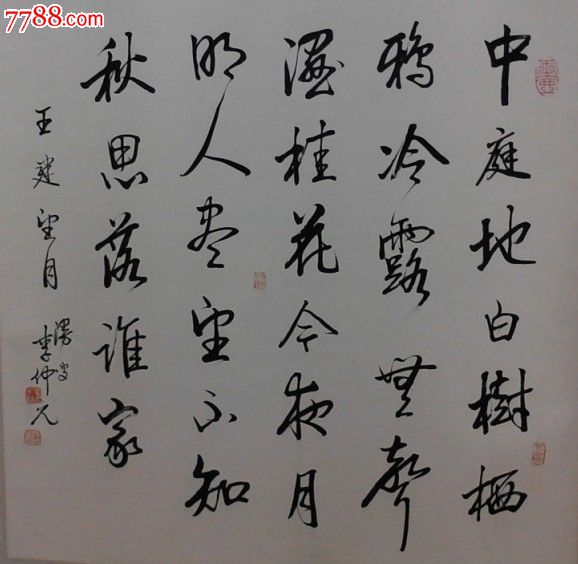 7788.com
中庭地白樹栖
鴉冷露無聲
濕桂花今夜月
明人盡望不知
秋思落誰家
王建望月
李仲元